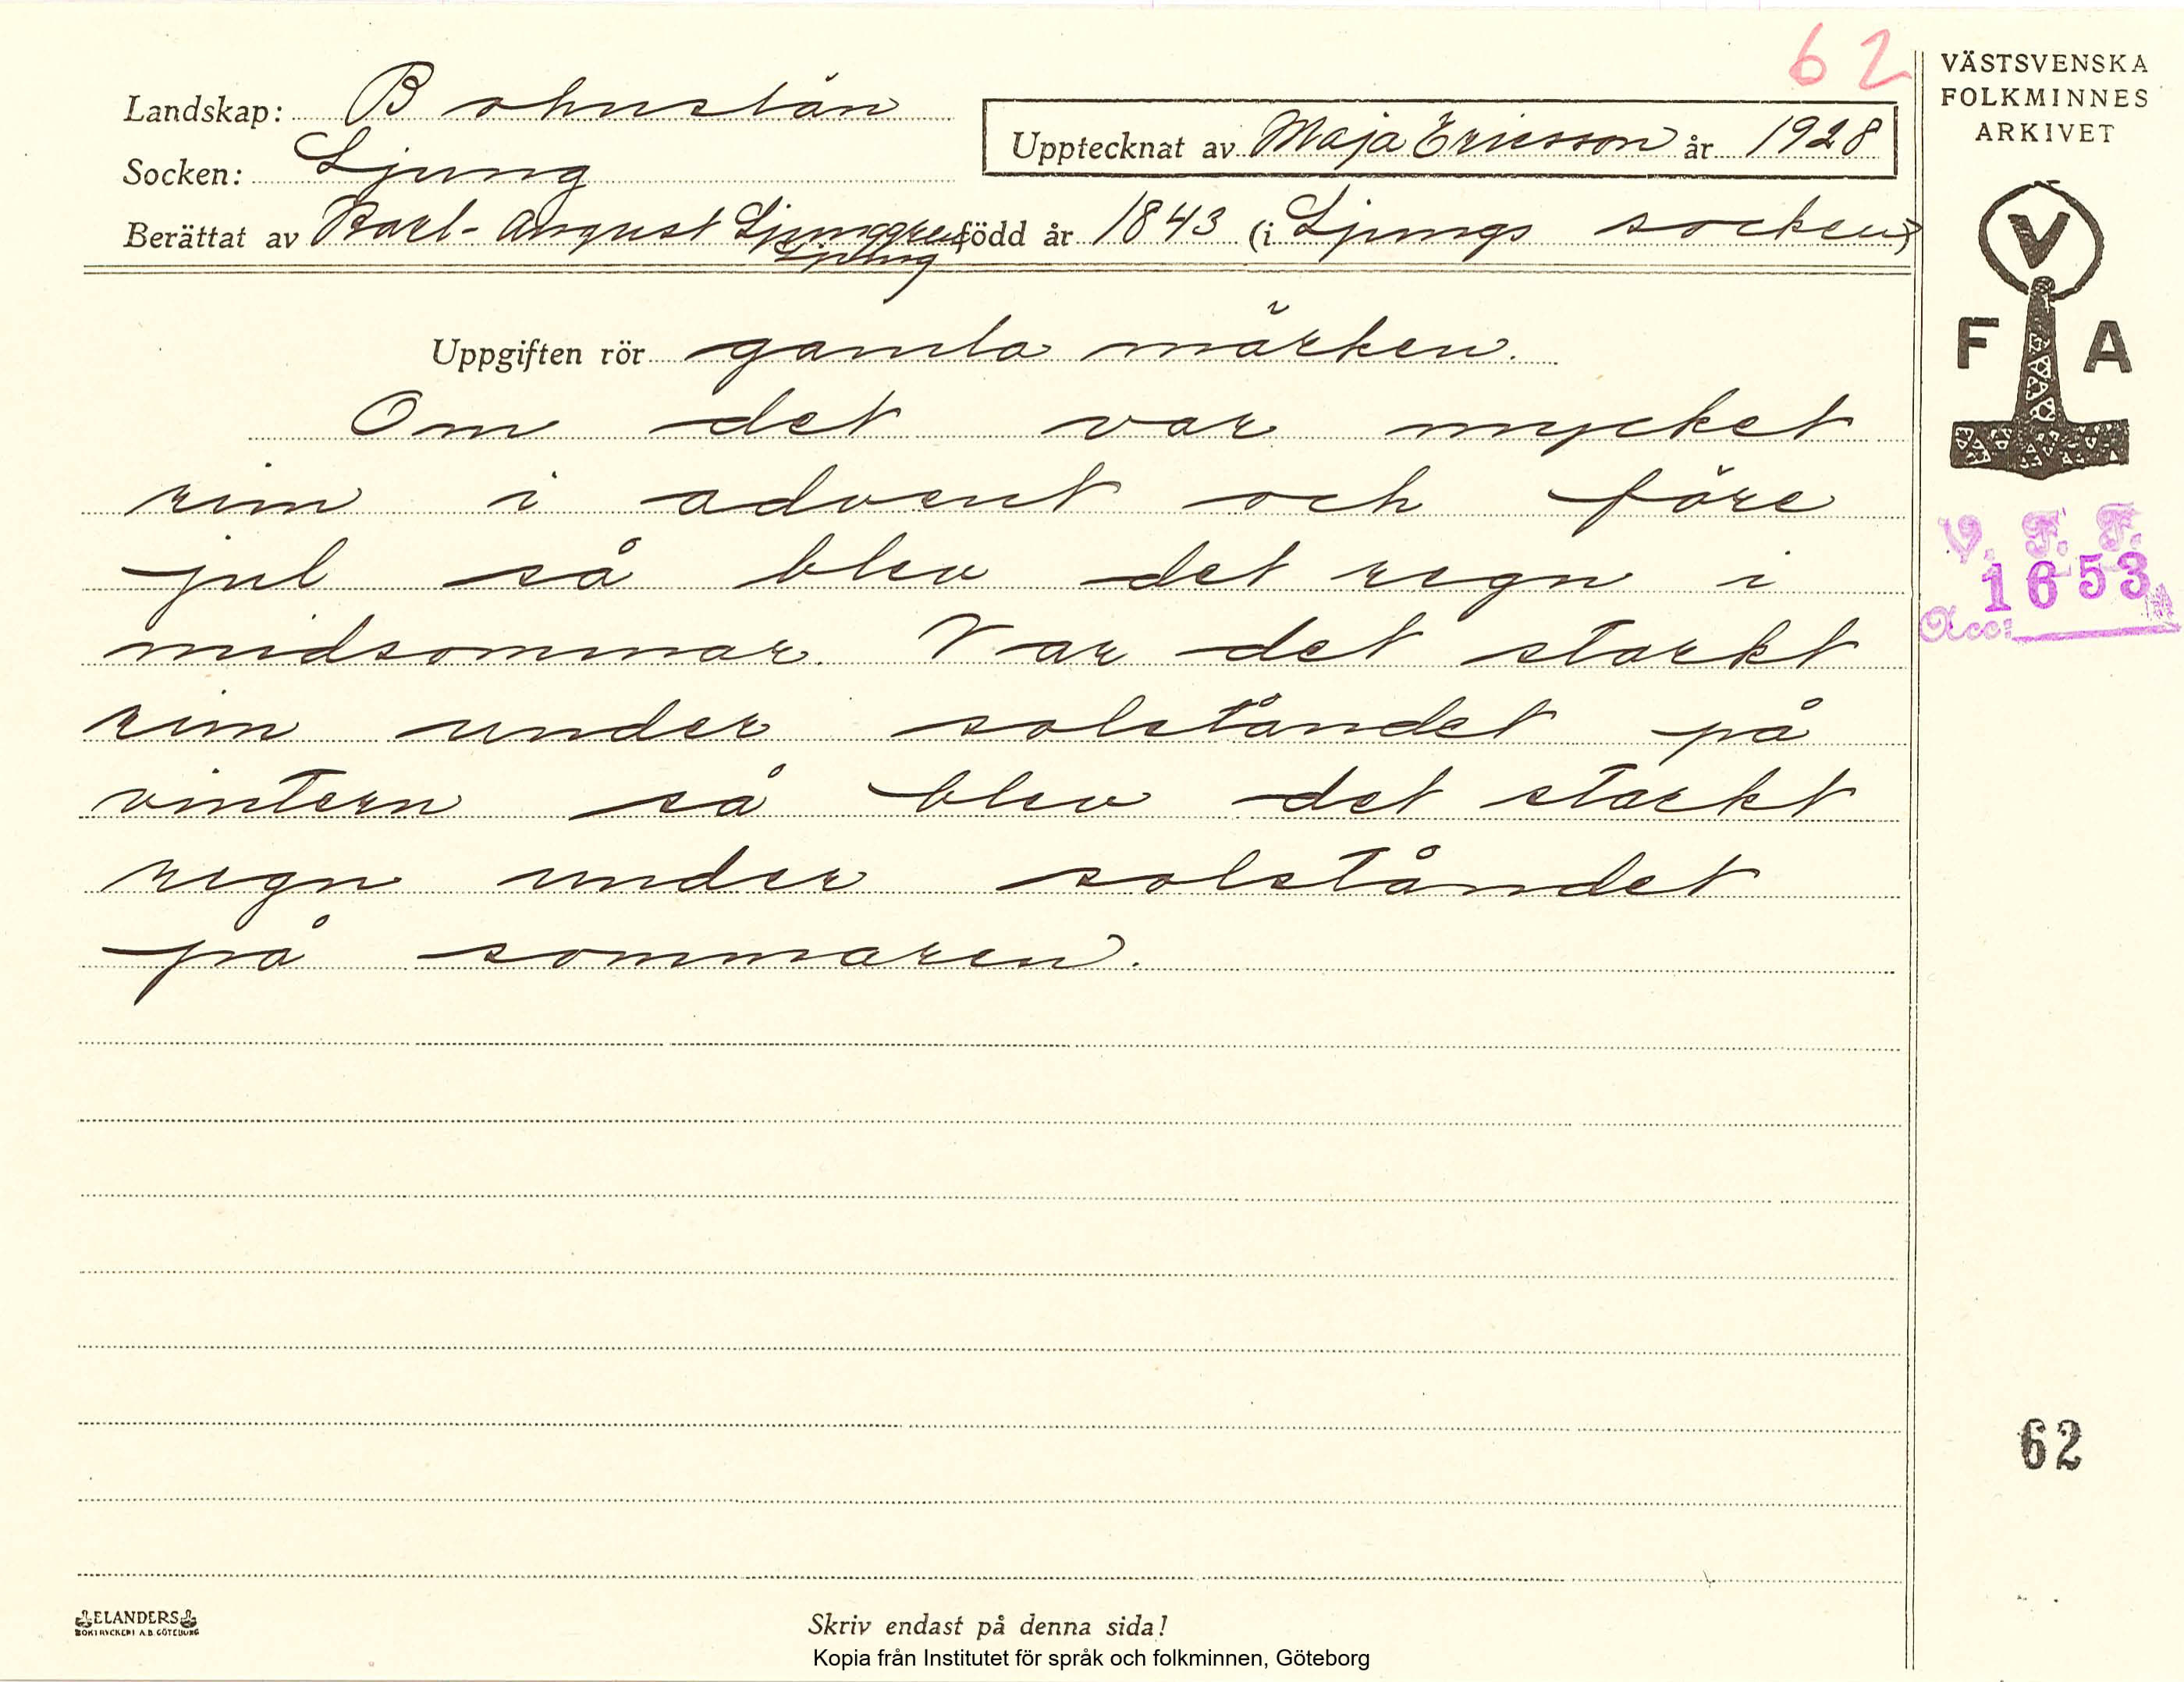 62
VÄSTSVENSKA
FOLKMINNES
ARKIVET
Landskap: Bohuslän
Upptecknat av Maja Ericsson år 1928
Socken: Ljung
Berättat av Karl-August Ljunggren född år 1843 (i Ljungs socken)
Ljung
V
F A
Uppgiften rör gamla märken.
Om det var mycket
rim i advent och före
jul så blev det regn i
midsommar. Var det starkt
rim under solståndet på
vintern så blev det starkt
regn under solståndet
på sommaren.
V. F. F.
1653
Acc:
62
ELANDERS
BOKTRYCKERI A.B. GÖTEBORG
Skriv endast på denna sida!
Kopia från Institutet för språk och folkminnen, Göteborg